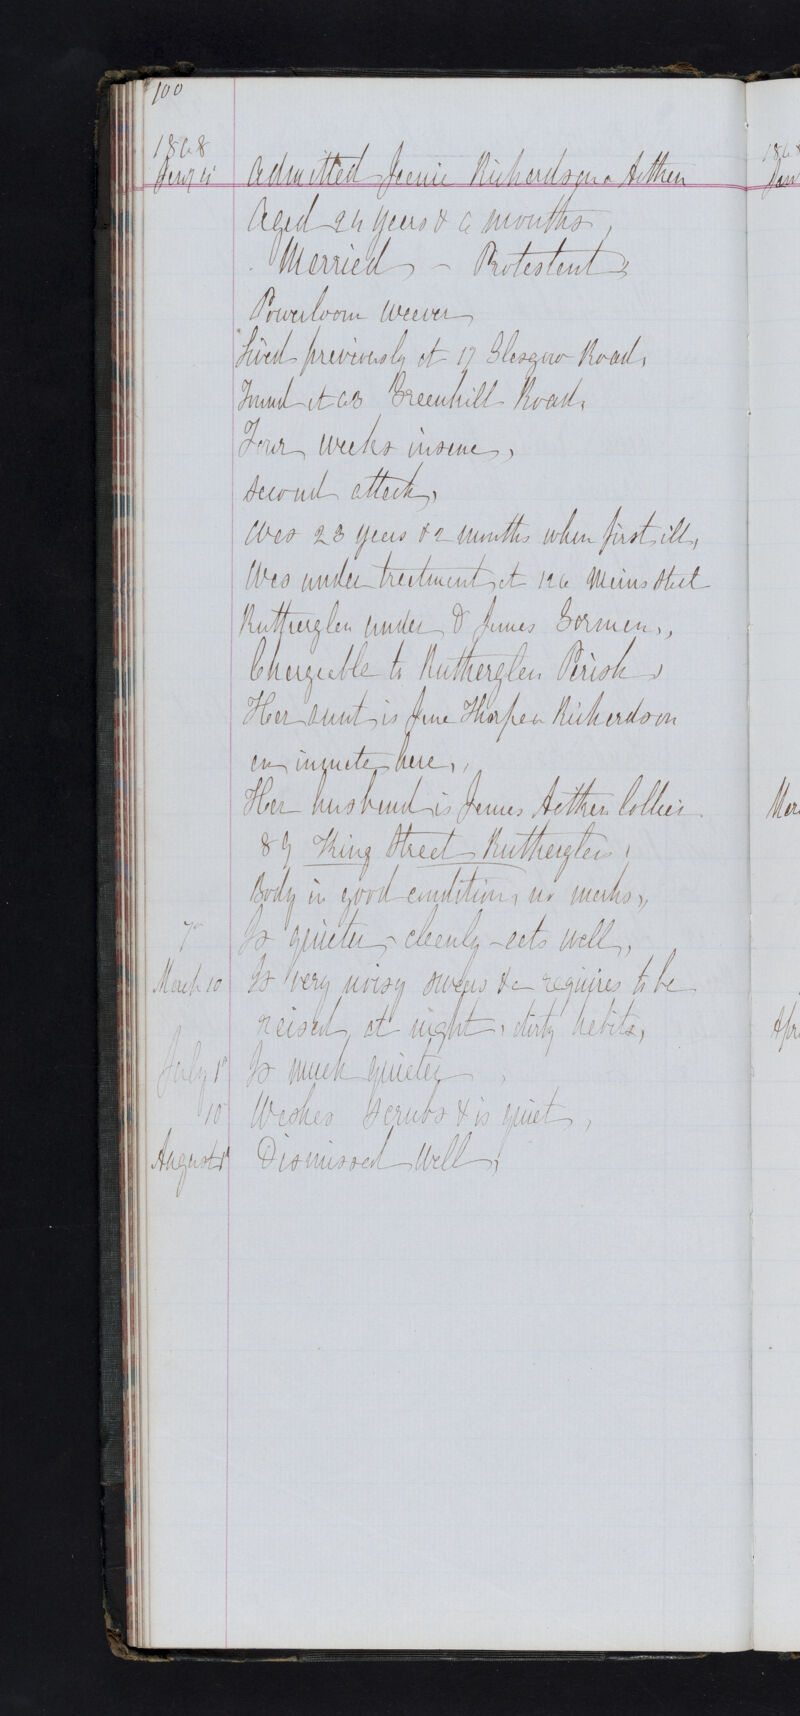 100
1868
Jany 4 Admitted Jeanie Richardson or Aitken
Aged 24 years & 6 months,
Married - Protestant,
Powerloom weaver
Lived previously at 17 Glasgow Road,
Found at 63 Greenhill Road,
Four weeks insane,
second attack,
Was 23 years & 2 months when first ill,
Was under treatment at 126 Main Street
Rutherglen under Dr James Gorman,
Chargeable to Rutherglen Parish,
Her aunt is Jane or Richardson
an inmate here,
Her husband is James Aitken Collier
89 King Street Rutherglen,
Body in good condition, no marks,
7 Is quieter - cleanly - eats well,
March 10 Is very noisy swears &c requires to be
raised at night, dirty habits,
July 1st Is much quieter,
10 Washes scrubs & is quiet,
August 1st Dismissed Well,